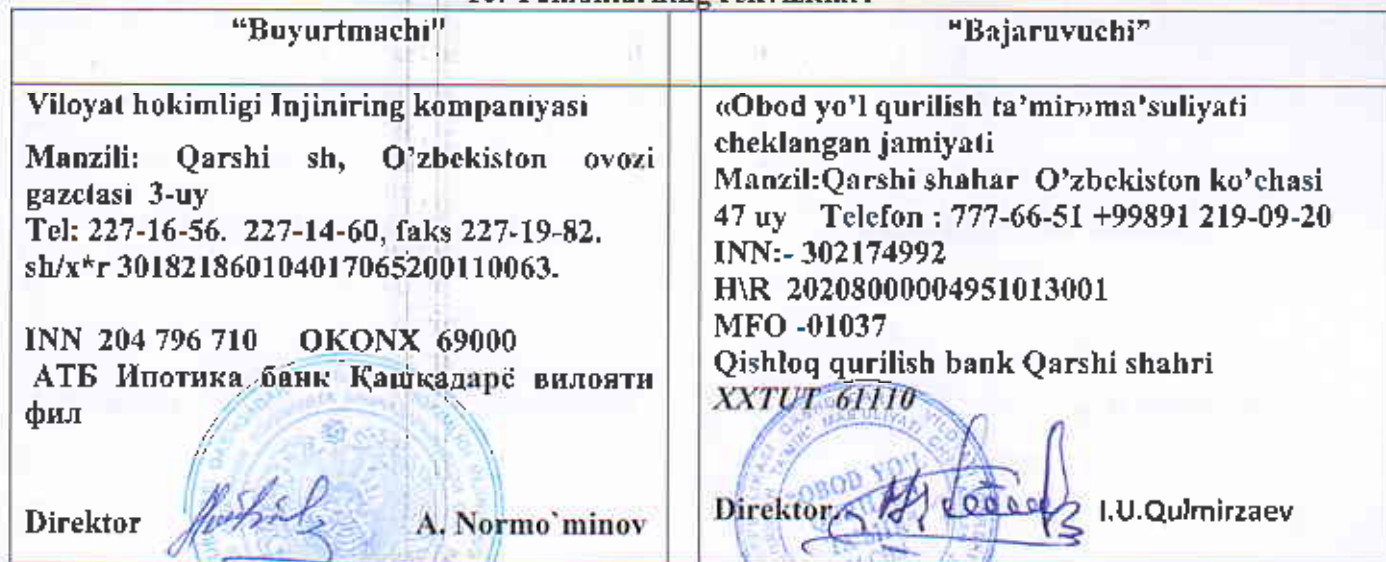 “Buyurtmachi"
Viloyat hokimligi Injiniring kompaniyasi
Manzili: Qarshi sh, O’zbekiston ovozi
gazetasi 3-uy
Tel: 227-16-56. 227-14-60, faks 227-19-82.
sh/x*r 301821860104017065200110063.
INN 204 796 710 OKONX 69000
АТБ Ипотика банк Қашқадарё вилояти
фил
Direktor A. Normo`minov
“Bajaruvuchi”
«Obod yo’l qurilish ta’mir»ma’suliyati
cheklangan jamiyati
Manzil:Qarshi shahar O’zbekiston ko’chasi
47 uy Telefon : 777-66-51 +99891 219-09-20
INN:- 302174992
H\R 20208000004951013001
MFO -01037
Qishloq qurilish bank Qarshi shahri
XXTUT 61110
Direktor I.U.Qulmirzaev
"OBOD YO'L